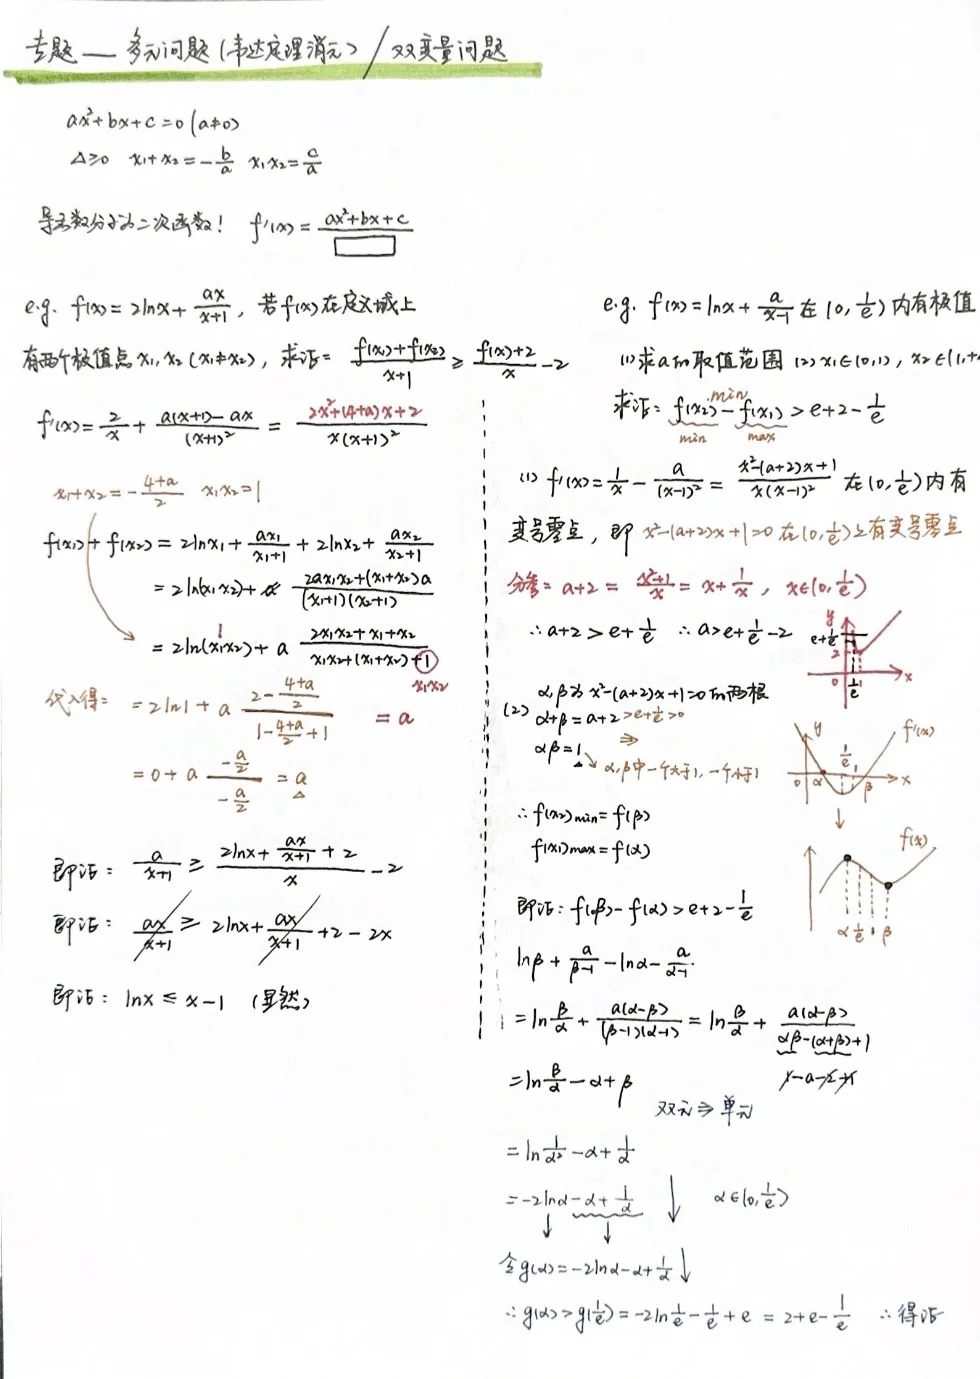 专题 — 多元问题(韦达定理消元) / 双变量问题
ax²+bx+c=0 (a≠0)
Δ≥0  x₁+x₂=-b/a  x₁x₂=c/a
导函数分子为二次函数!  f'(x)=(ax²+bx+c)/□
e.g. f(x)=2lnx+ax/(x+1), 若f(x)在定义域上
有两个极值点x₁,x₂(x₁≠x₂), 求证: (f(x₁)+f(x₂))/(x+1) ≥ (f(x)+2)/x -2
f'(x)=2/x+(a(x+1)-ax)/(x+1)²=(2x²+(4+a)x+2)/(x(x+1)²)
x₁+x₂=-(4+a)/2  x₁x₂=1
f(x₁)+f(x₂)=2lnx₁+ax₁/(x₁+1)+2lnx₂+ax₂/(x₂+1)
=2ln(x₁x₂)+(2ax₁x₂+(x₁+x₂)a)/((x₁+1)(x₂+1))
1
=2ln(x₁x₂)+a (2x₁x₂+x₁+x₂)/(x₁x₂+(x₁+x₂)+1)
x₁x₂
代入得: =2ln1+a (2-(4+a)/2)/(1-(4+a)/2+1) =a
=0+a (-a/2)/(-a/2) =a
即证: a/(x+1) ≥ (2lnx+ax/(x+1)+2)/x -2
即证: ax/(x+1) ≥ 2lnx+ax/(x+1)+2-2x
即证: lnx≤x-1 (显然)
e.g. f(x)=lnx+a/(x-1) 在(0,1/e)内有极值
(1)求a的取值范围 (2)x₁∈(0,1), x₂∈(1,+
min
求证: f(x₂)-f(x₁)>e+2-1/e
min max
(1) f'(x)=1/x-a/(x-1)²=(x²-(a+2)x+1)/(x(x-1)²) 在(0,1/e)内有
变号零点, 即 x²-(a+2)x+1=0在(0,1/e)上有变号零点
分参: a+2=(x²+1)/x=x+1/x, x∈(0,1/e)
∴a+2>e+1/e ∴a>e+1/e-2
y e+1/e 2 0 1/e 1 x
α,β为x²-(a+2)x+1=0的两根
(2) α+β=a+2>e+1/e>0
⇒
αβ=1 α,β中一个大于1,一个小于1
y f'(x) 0 α 1/e 1 β x
∴f(x₂)min=f(β)
f(x₁)max=f(α)
f(x) α 1/e 1 β
即证: f(β)-f(α)>e+2-1/e
lnβ+a/(β-1)-lnα-a/(α-1)
=lnβ/α+a(α-β)/((β-1)(α-1))=lnβ/α+a(α-β)/(αβ-(α+β)+1)
1-a-2+1
=lnβ/α-α+β
双元⇒单元
=ln1/α²-α+1/α
=-2lnα-α+1/α ↓ α∈(0,1/e)
令g(α)=-2lnα-α+1/α ↓
∴g(α)>g(1/e)=-2ln1/e-1/e+e=2+e-1/e ∴得证